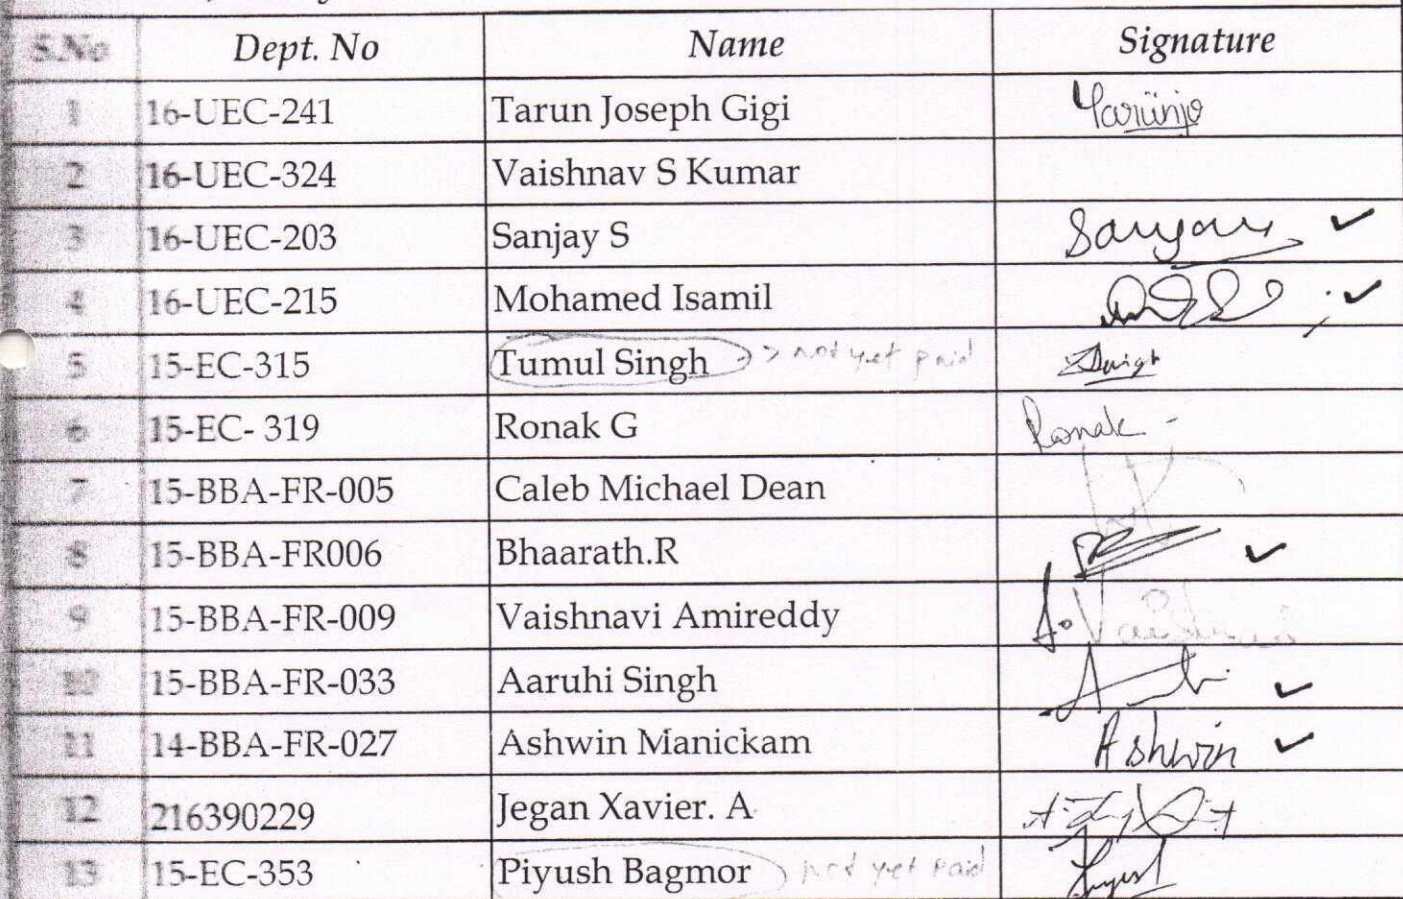 S.No Dept. No Name Signature
1 16-UEC-241 Tarun Joseph Gigi
2 16-UEC-324 Vaishnav S Kumar
3 16-UEC-203 Sanjay S Sanjay ✓
4 16-UEC-215 Mohamed Isamil ✓
5 15-EC-315 Tumul Singh > not yet paid
6 15-EC- 319 Ronak G Ronak
7 15-BBA-FR-005 Caleb Michael Dean
8 15-BBA-FR006 Bhaarath.R ✓
9 15-BBA-FR-009 Vaishnavi Amireddy
10 15-BBA-FR-033 Aaruhi Singh ✓
11 14-BBA-FR-027 Ashwin Manickam Ashwin ✓
12 216390229 Jegan Xavier. A
13 15-EC-353 Piyush Bagmor not yet paid